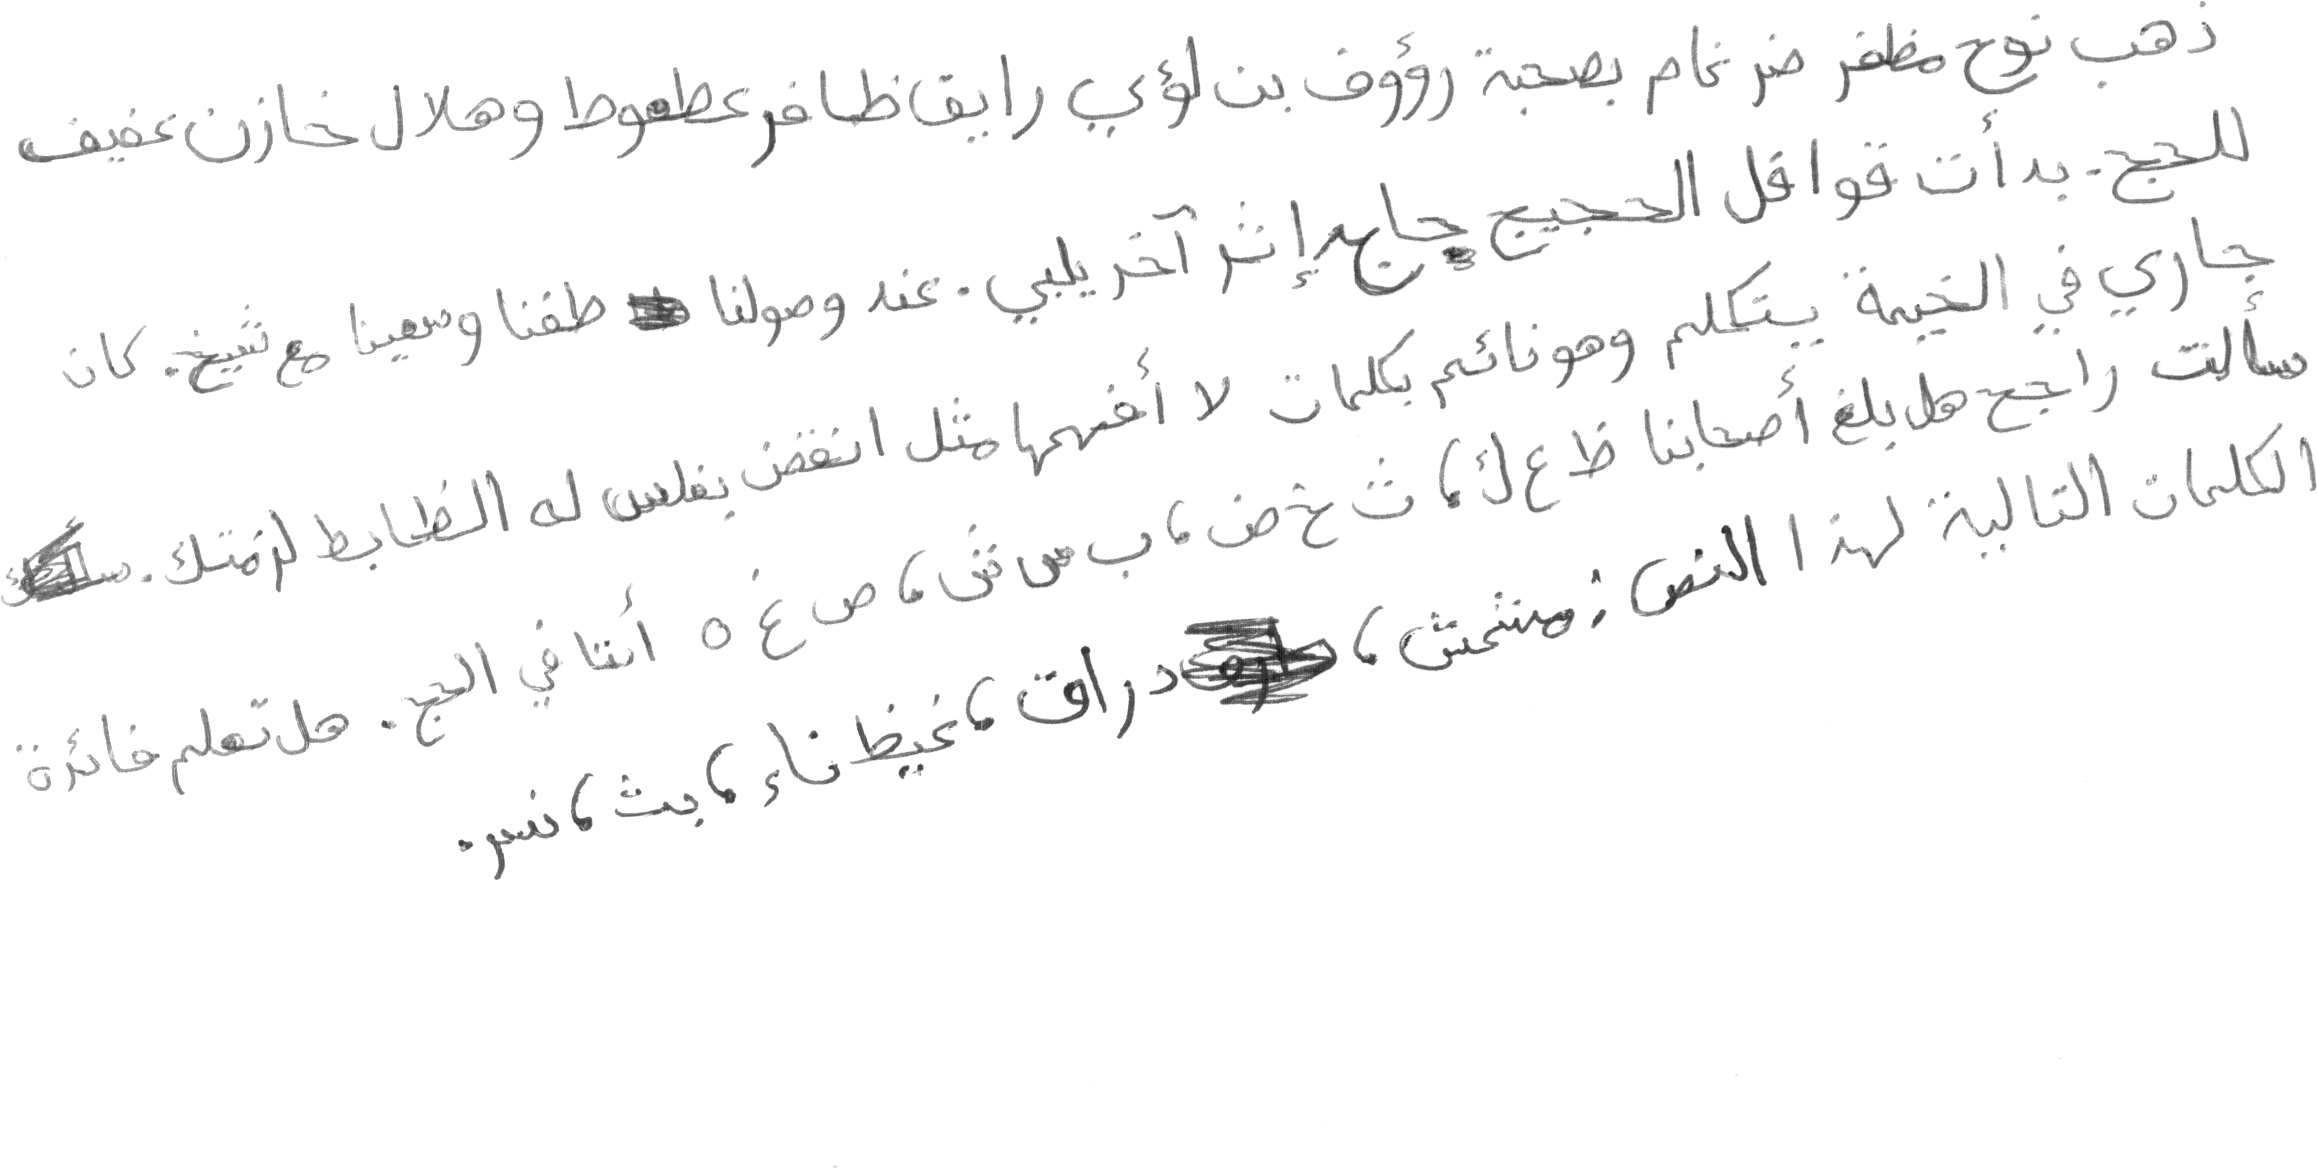 ذهب نوح مظفر ضرغام بصحبة رؤوف بن لؤي رايق ظافر عطعوط وهلال خازن عفيف
للحج. بدأت قوافل الحجيج حاج إثر آخر يلبي. عند وصولنا طفنا وسعينا مع شيخ. كان
جاري في الخيمة يتكلم وهو نائم بكلمات لا أفهمها مثل انقض يفلس له الظابط لزمتك.
سألت راجح هل بلغ أصحابنا ظ ع ك، ث خ ض، ب س ش، ص غ ه أننا في الحج. هل تعلم فائزة
الكلمات التالية لهذا النص: مشمش، دراق، غيظ ناء، بث، نسر.